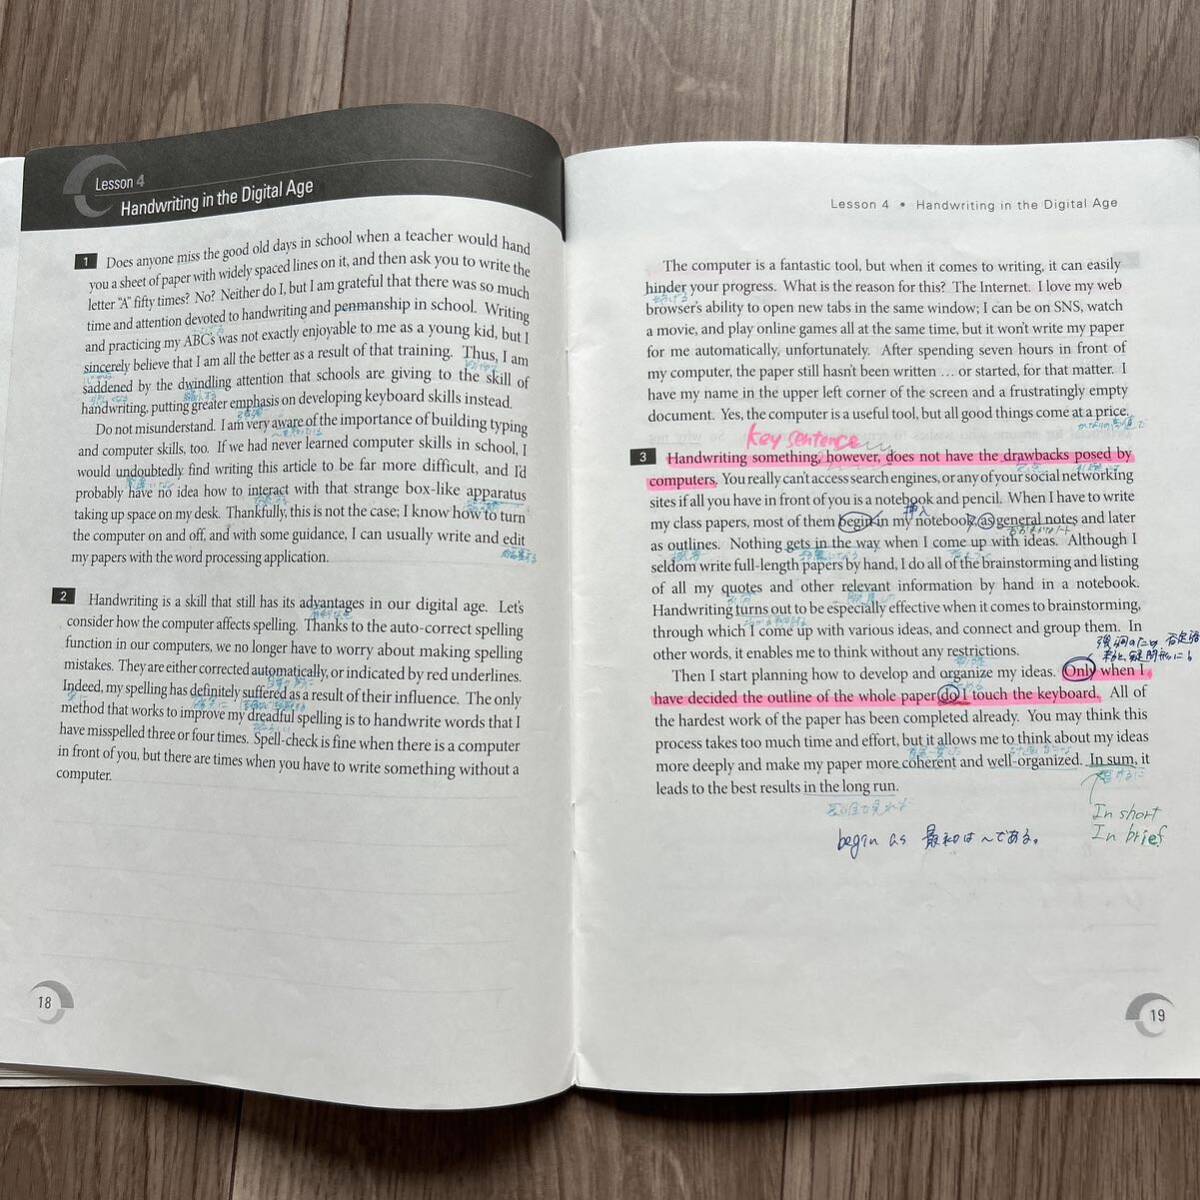 Lesson 4
Handwriting in the Digital Age
1 Does anyone miss the good old days in school when a teacher would hand
you a sheet of paper with widely spaced lines on it, and then ask you to write the
letter "A" fifty times? No? Neither do I, but I am grateful that there was so much
time and attention devoted to handwriting and penmanship in school. Writing
and practicing my ABC's was not exactly enjoyable to me as a young kid, but I
sincerely believe that I am all the better as a result of that training. Thus, I am
saddened by the dwindling attention that schools are giving to the skill of
handwriting, putting greater emphasis on developing keyboard skills instead.
Do not misunderstand. I am very aware of the importance of building typing
and computer skills, too. If we had never learned computer skills in school, I
would undoubtedly find writing this article to be far more difficult, and I'd
probably have no idea how to interact with that strange box-like apparatus
taking up space on my desk. Thankfully, this is not the case; I know how to turn
the computer on and off, and with some guidance, I can usually write and edit
my papers with the word processing application.
2 Handwriting is a skill that still has its advantages in our digital age. Let's
consider how the computer affects spelling. Thanks to the auto-correct spelling
function in our computers, we no longer have to worry about making spelling
mistakes. They are either corrected automatically, or indicated by red underlines.
Indeed, my spelling has definitely suffered as a result of their influence. The only
method that works to improve my dreadful spelling is to handwrite words that I
have misspelled three or four times. Spell-check is fine when there is a computer
in front of you, but there are times when you have to write something without a
computer.
18
Lesson 4 • Handwriting in the Digital Age
The computer is a fantastic tool, but when it comes to writing, it can easily
hinder your progress. What is the reason for this? The Internet. I love my web
browser's ability to open new tabs in the same window; I can be on SNS, watch
a movie, and play online games all at the same time, but it won't write my paper
for me automatically, unfortunately. After spending seven hours in front of
my computer, the paper still hasn't been written … or started, for that matter. I
have my name in the upper left corner of the screen and a frustratingly empty
document. Yes, the computer is a useful tool, but all good things come at a price.
key sentence
3 Handwriting something, however, does not have the drawbacks posed by
computers. You really can't access search engines, or any of your social networking
sites if all you have in front of you is a notebook and pencil. When I have to write
挿入
my class papers, most of them begin in my notebook as general notes and later
as outlines. Nothing gets in the way when I come up with ideas. Although I
seldom write full-length papers by hand, I do all of the brainstorming and listing
of all my quotes and other relevant information by hand in a notebook.
Handwriting turns out to be especially effective when it comes to brainstorming,
through which I come up with various ideas, and connect and group them. In
other words, it enables me to think without any restrictions.
Then I start planning how to develop and organize my ideas. Only when I
have decided the outline of the whole paper do I touch the keyboard. All of
the hardest work of the paper has been completed already. You may think this
process takes too much time and effort, but it allows me to think about my ideas
more deeply and make my paper more coherent and well-organized. In sum, it
leads to the best results in the long run.
In short
In brief
begin as 最初は〜である。
19